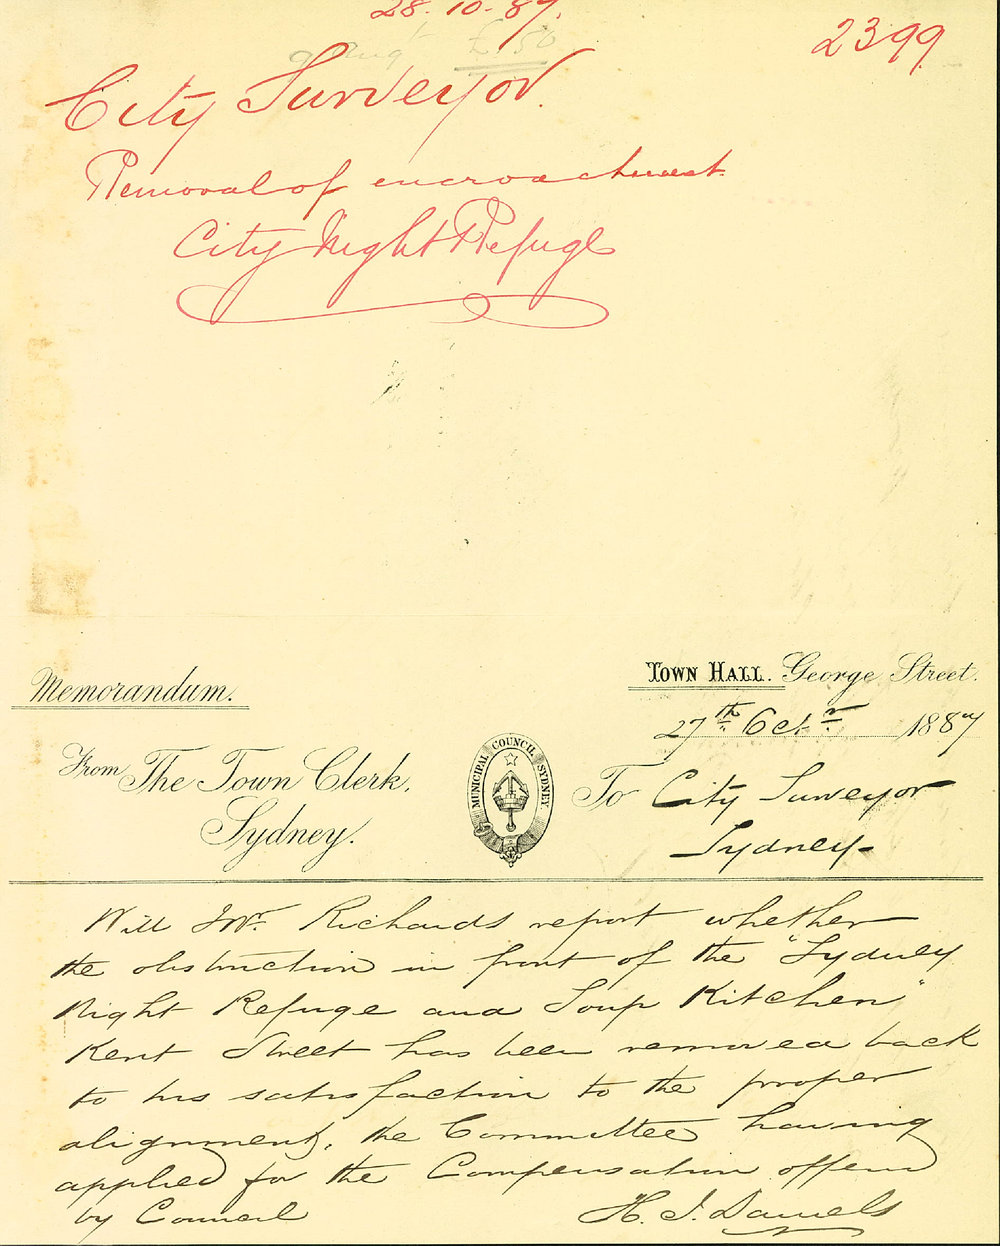 28.10.87.
2399
£50
City Surveyor.
Removal of encroachment.
City Night Refuge
Memorandum.
Town Hall. George Street.
27th Octr 1887
From The Town Clerk,
Sydney.
MUNICIPAL COUNCIL SYDNEY
To City Surveyor
Sydney-
Will Mr. Richards report whether
the obstruction in front of the "Sydney
Night Refuge and Soup Kitchen"
Kent Street has been removed back
to his satisfaction to the proper
alignment, the Committee having
applied for the Compensation offered
by Council
H. J. Daniels